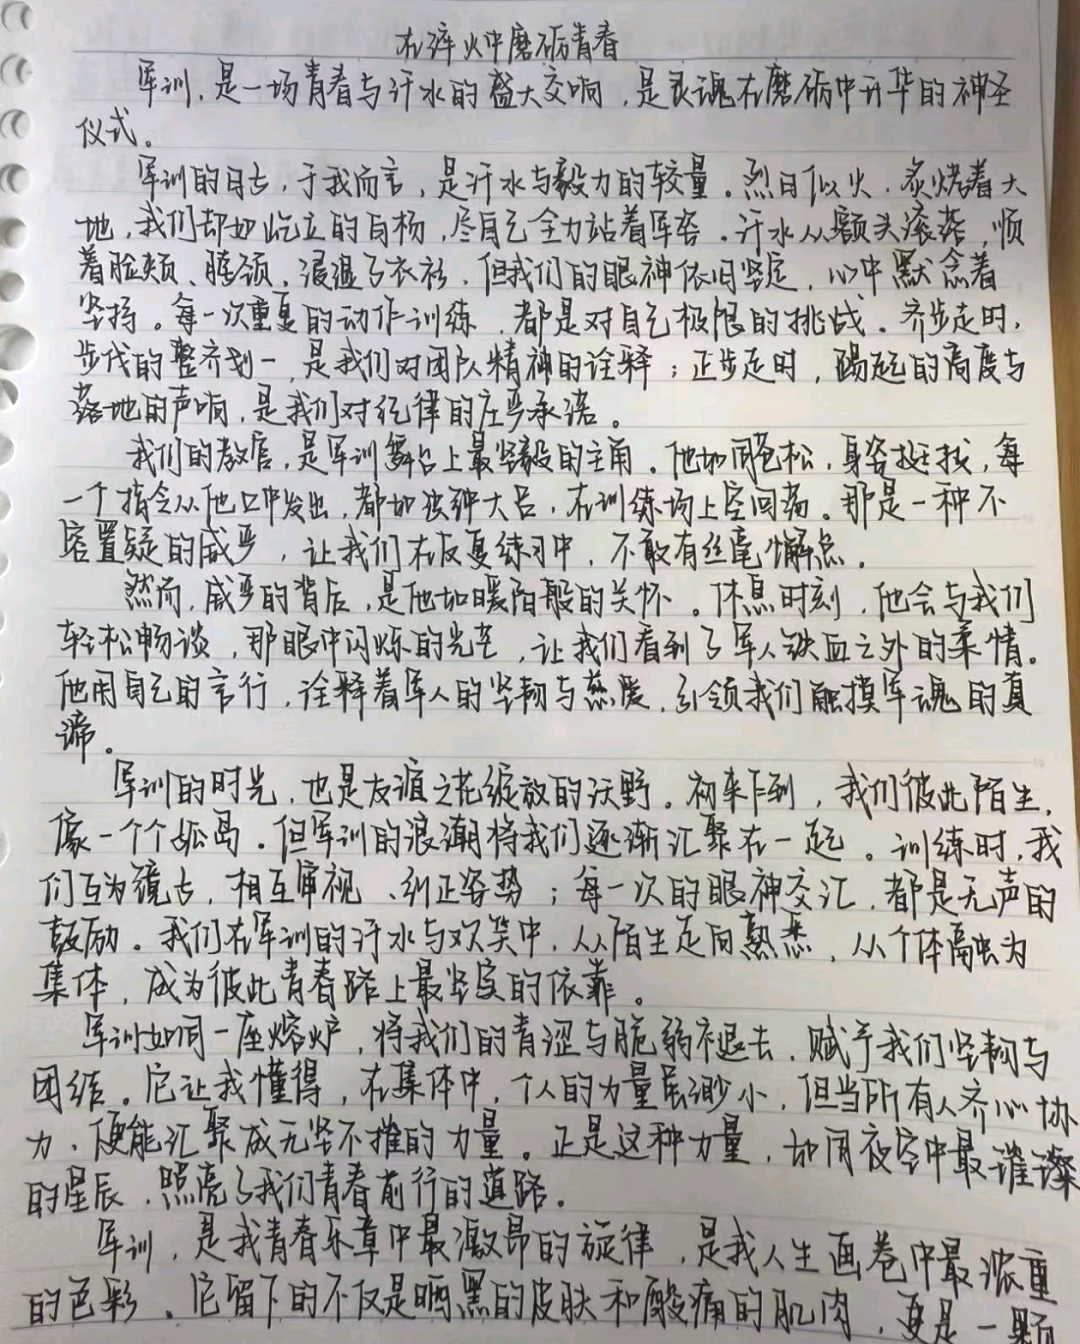 在淬火中磨砺青春
军训,是一场青春与汗水的盛大交响,是灵魂在磨砺中升华的神圣
仪式。
军训的日子,于我而言,是汗水与毅力的较量。烈日似火,炙烤着大
地,我们却如屹立的白杨,尽自己全力站着军姿。汗水从额头滚落,顺
着脸颊、脖颈,浸湿了衣衫,但我们的眼神依旧坚定,心中默念着
坚持。每一次重复的动作训练,都是对自己极限的挑战。齐步走时,
步伐的整齐划一,是我们对团队精神的诠释;正步走时,踢起的高度与
落地的声响,是我们对纪律的庄严承诺。
我们的教官,是军训舞台上最坚毅的主角。他如同苍松,身姿挺拔,每
一个指令从他口中发出,都如洪钟大吕,在训练场上空回荡。那是一种不
容置疑的威严,让我们在反复练习中,不敢有丝毫懈怠。
然而,威严的背后,是他如暖阳般的关怀。休息时刻,他会与我们
轻松畅谈,那眼中闪烁的光芒,让我们看到了军人铁血之外的柔情。
他用自己的言行,诠释着军人的坚韧与慈爱,引领我们触摸军魂的真
谛。
军训的时光,也是友谊之花绽放的沃野。初来乍到,我们彼此陌生,
像一个个孤岛。但军训的浪潮将我们逐渐汇聚在一起。训练时,我
们互为镜古,相互审视、纠正姿势;每一次的眼神交汇,都是无声的
鼓励。我们在军训的汗水与欢笑中,从陌生走向熟悉,从个体融为
集体,成为彼此青春路上最坚实的依靠。
军训如同一座熔炉,将我们的青涩与脆弱褪去,赋予我们坚韧与
团结。它让我懂得,在集体中,个人的力量虽渺小,但当所有人齐心协
力,便能汇聚成无坚不摧的力量。正是这种力量,如同夜空中最璀璨
的星辰,照亮了我们青春前行的道路。
军训,是我青春乐章中最激昂的旋律,是我人生画卷中最浓重
的色彩。它留下的不仅是晒黑的皮肤和酸痛的肌肉,更是一颗